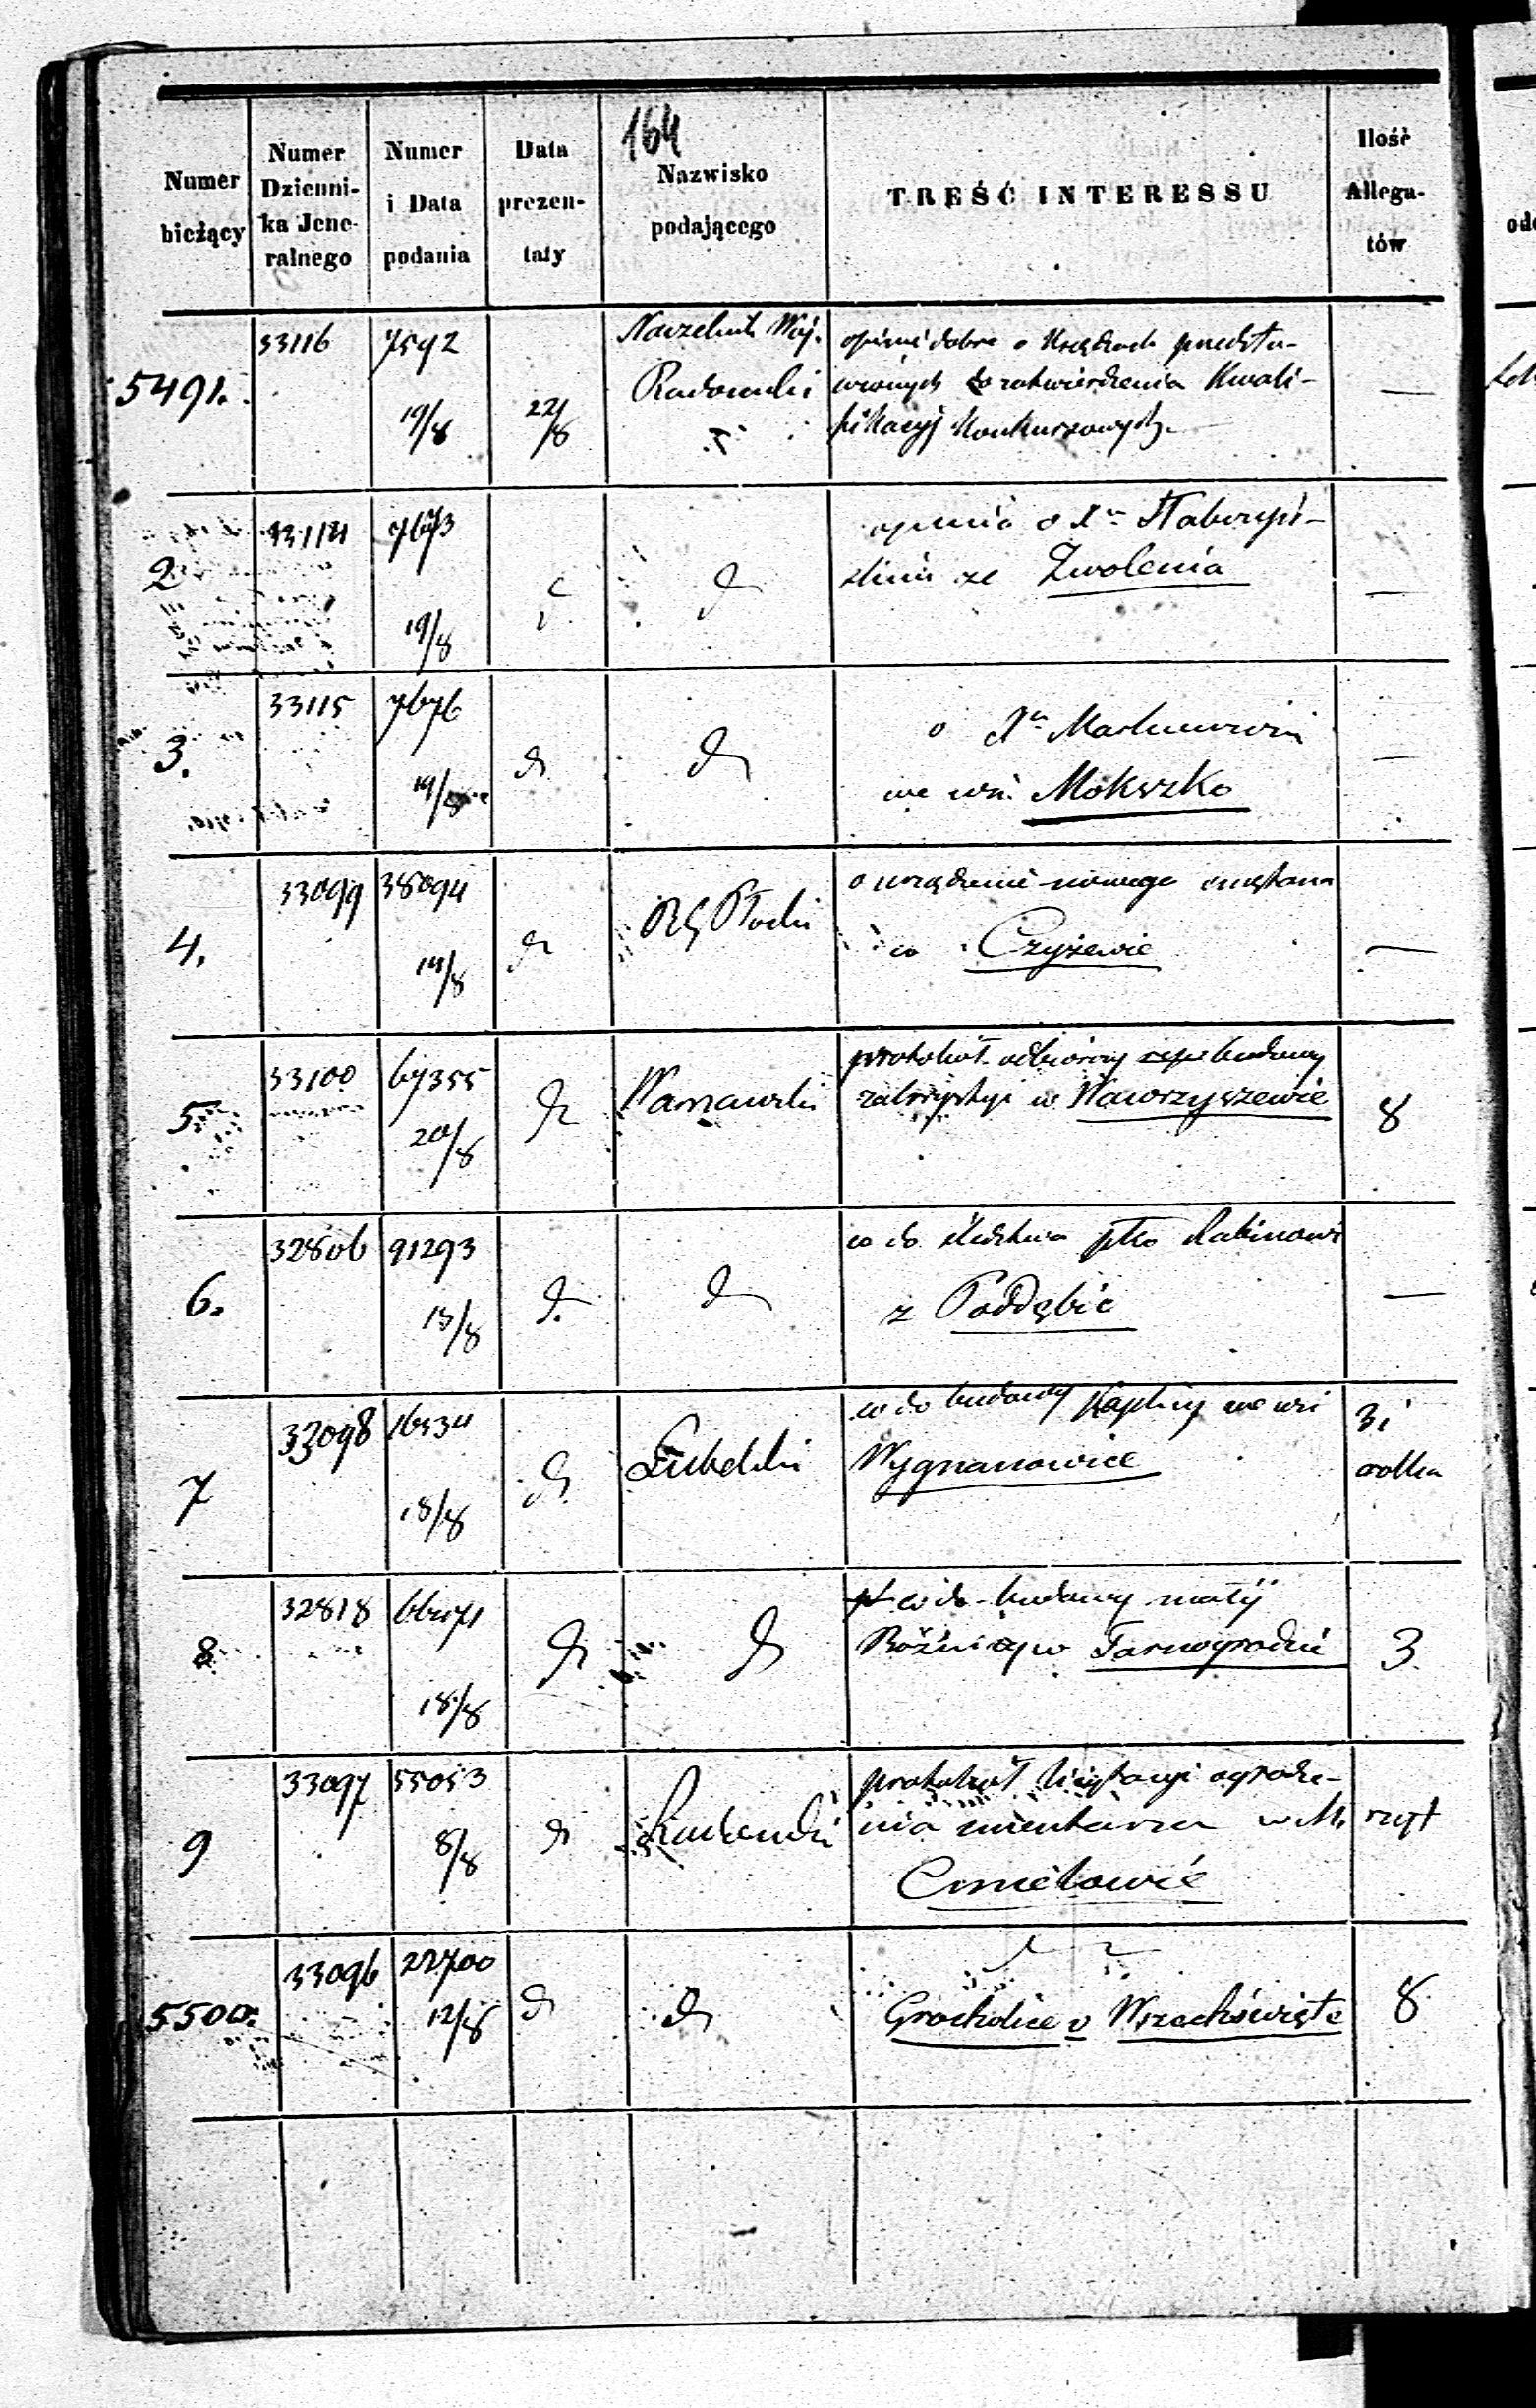 164
Numer bieżący
Numer Dzienni-ka Jene-ralnego
Numer i Data podania
Data prezen-taty
Nazwisko podającego
TREŚĆ INTERESSU
Ilość Allega-tów
5491. 33116 7592 19/8 22/8 Naczelnik Woj. Radomski
opinie dobre o Księdzach przedsta-
wionych do zatwierdzenia Kwali-
fikacyj Konkursowych.
—
2 7673 19/8
opinia o Xu
ze Zwolenia
—
3. 33115 7676 19/8
o Xu
we wsi Mokrzko
—
4. 33099 38094 14/8 RG Płocki
o urządzenie nowego cmętarza
w Czyżewie
—
5. 33100 67355 20/8 Warszawski
protokół odbiorczy budowy
zakrystyi w Wawrzyszewie
8
6. 32806 91293 13/8
co do śledztwa ptko Rabinowi
z Poddębic
—
7 33098 16534 18/8 Lubelski
co do budowy Kaplicy we wsi
Wygnanowice
3 i
8 32818 18/8
co do budowy małej
Bóżnicy w Tarnogrodzie
3
9 33097 55053 8/8 Radomski
protokół licytacyi ogrodze-
nia cmentarza w M.
Ćmielowie
5500. 33096 22700 12/8
Grocholice v Wszechświęte
8